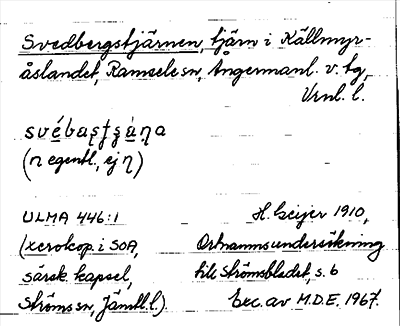 Svedbergstjärnen, tjärn i Källmyr-
åslandet, Ramsele sn, Ångermanl. v. tg,
Vrnl. l.
(n egentl., ej η)
ULMA 446:1
H. Geijer 1910,
(xerokop. i SOA,
Ortnamnsundersökning
särsk. kapsel,
till Strömsbladet, s. 6
Ströms sn, Jämtl. l.)
Exc. av M.D.E. 1967.